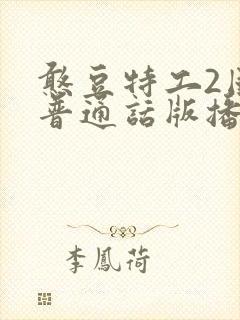 憨豆特工2
普通話版播
李鳳荷